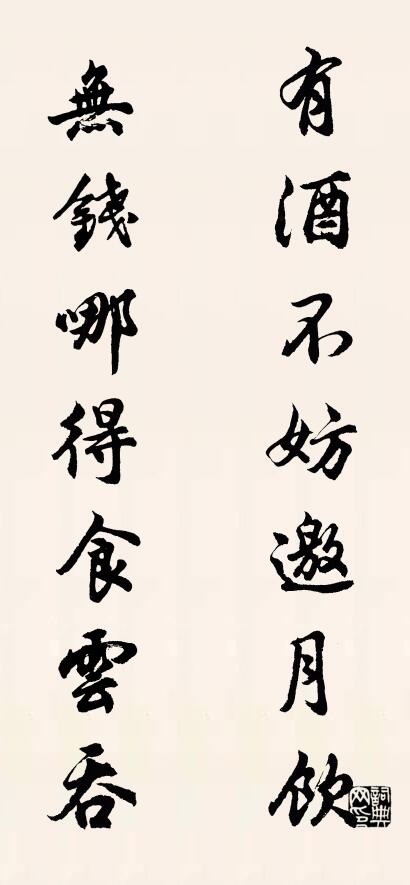 有酒不妨邀月飲
無錢哪得食雲吞
詞典網